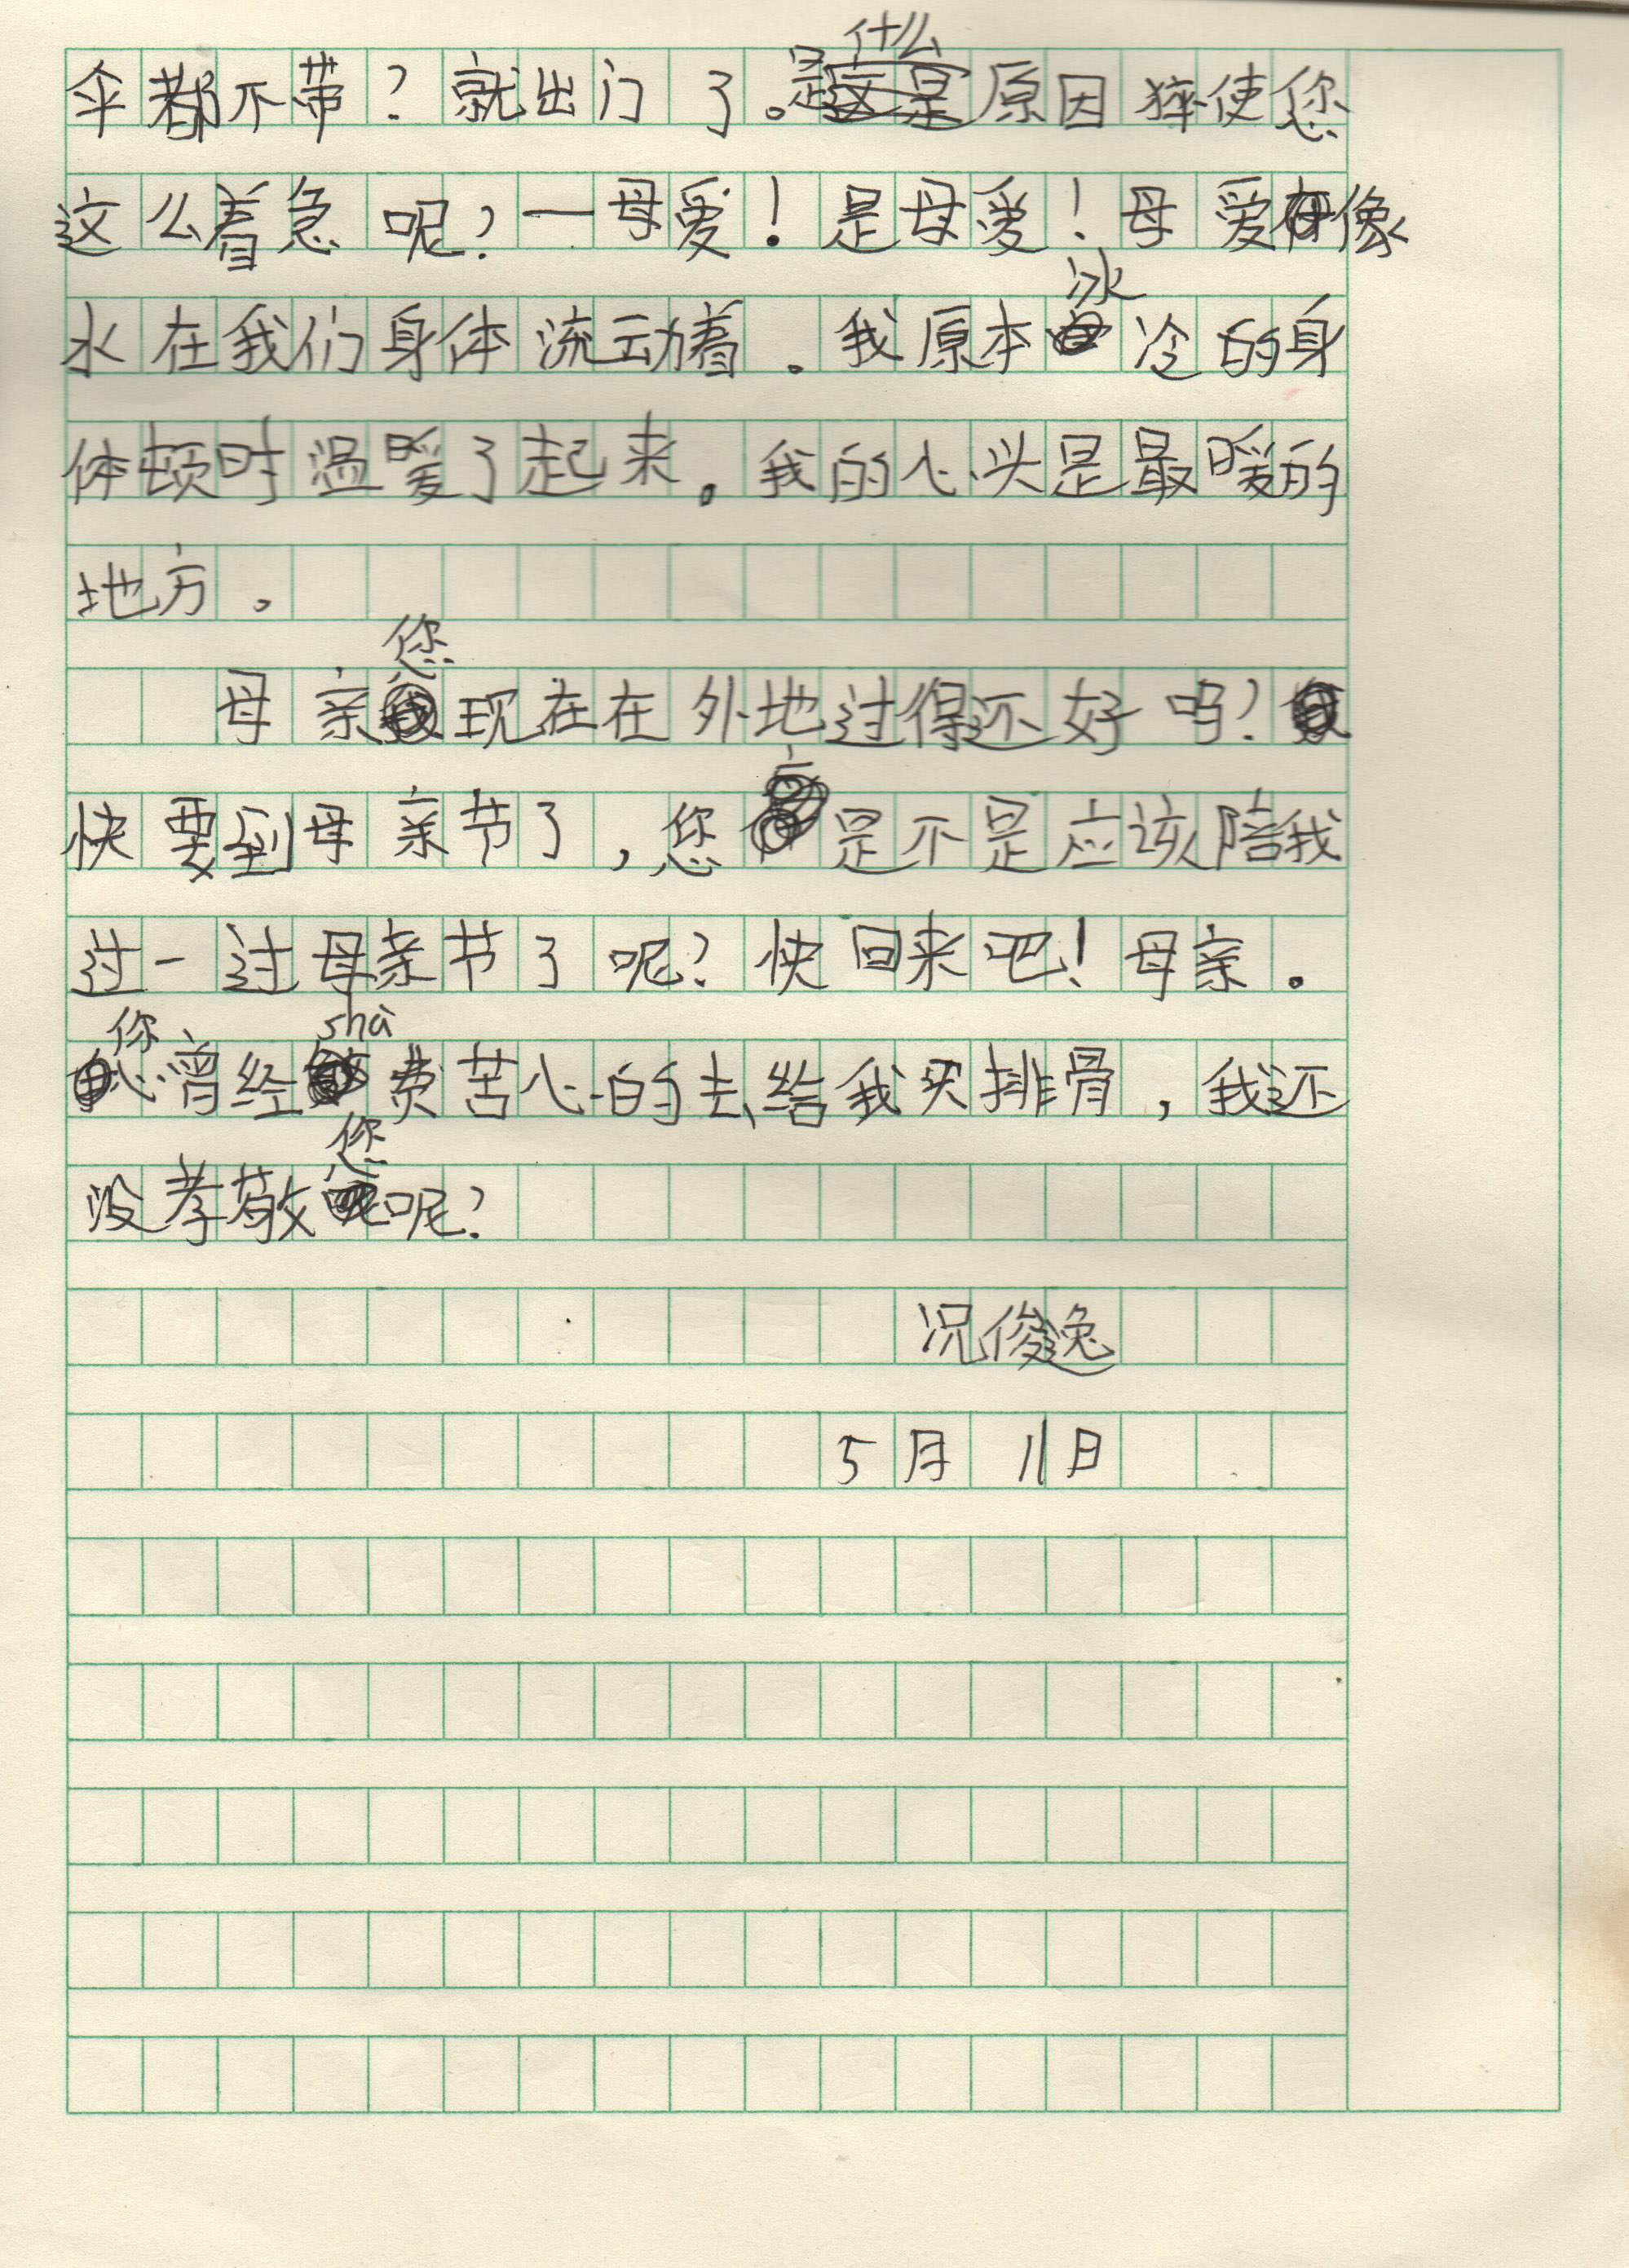 伞都不带?就出门了。是什么原因猝使您
这么着急呢?—母爱!是母爱!母爱像
水在我们身体流动着。我原本冰冷的身
体顿时温暖了起来。我的心头是最暖的
地方。
母亲您现在在外地过得还好吗?
快要到母亲节了,您是不是应该陪我
过一过母亲节了呢?快回来吧!母亲。
您曾经shà费苦心的去给我买排骨,我还
没孝敬您呢?
况俊逸
5月11日